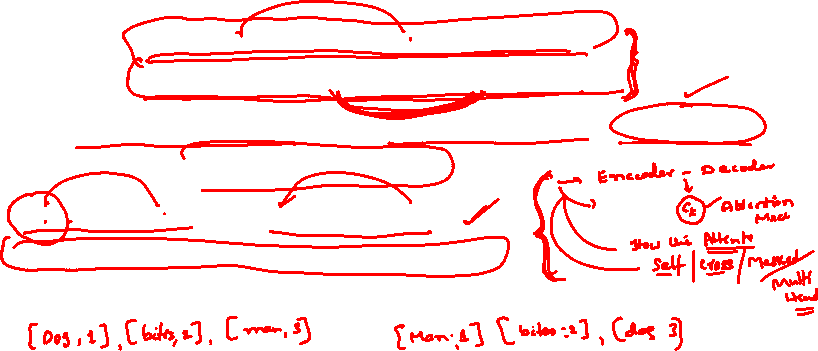 Encoder - Decoder
Ct Attention Mec
How this Attente
Self | Cross / Masked / Multi Head
[Dog, 1], [bites, 2], [man, 3]
[Man, 1] [bites : 2], [dog 3]